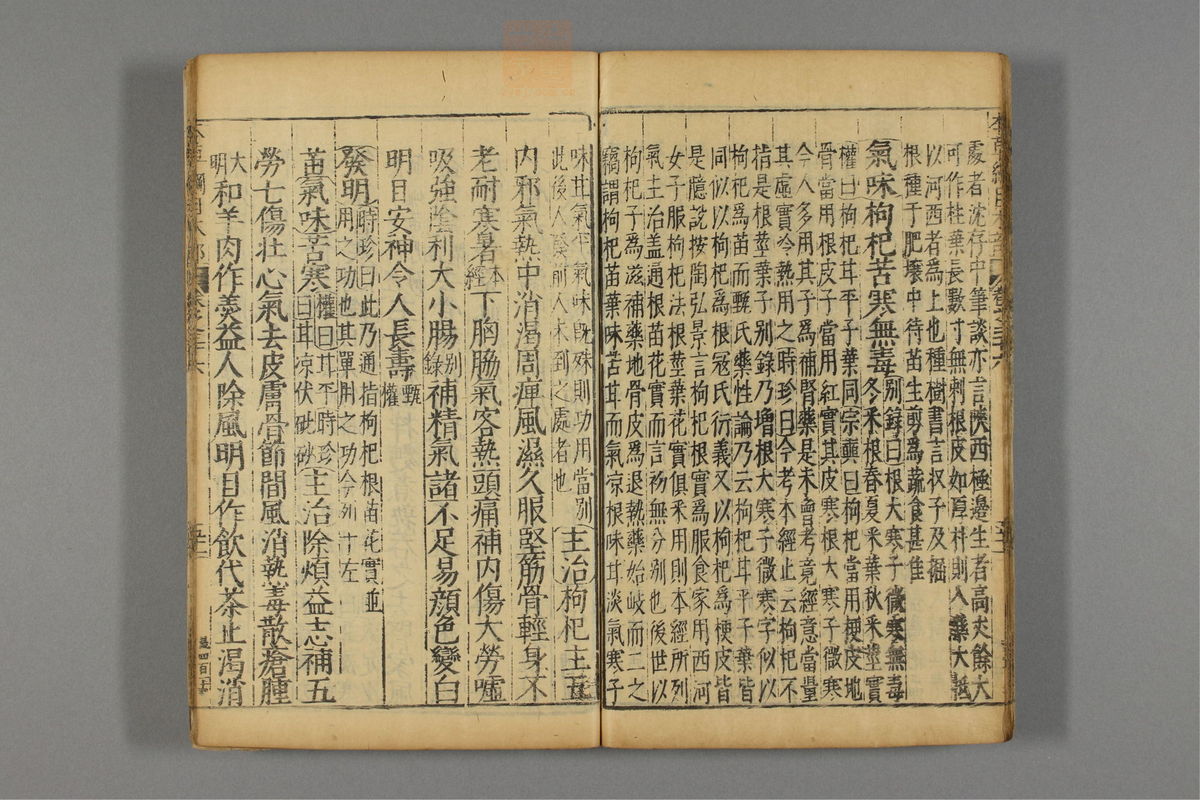 處者沈存中筆談亦言陝西極邊生者高丈餘大
可作柱葉長數寸無刺根皮如厚朴則入藥大抵
以河西者為上也種樹書言收子及掘
根種于肥壤中待苗生剪為蔬食甚佳
氣味枸杞苦寒無毒別錄曰根大寒子微寒無毒冬采根春夏采葉秋采莖實
權曰枸杞甘平子葉同宗奭曰枸杞當用梗皮地
骨當用根皮子當用紅實其皮寒根大寒子微寒
今人多用其子為補腎藥是未曾考竟經意當量
其虛實冷熱用之時珍曰今考本經止云枸杞不
指是根莖葉子別錄乃增根大寒子微寒字似以
枸杞為苗而甄氏藥性論乃云枸杞甘平子葉皆
同似以枸杞為根寇氏衍義又以枸杞為梗皮皆
是臆說按陶弘景言枸杞根實為服食家用西河
女子服枸杞法根莖葉花實俱采用則本經所列
氣主治蓋通根苗花實而言初無分別也後世以
枸杞子為滋補藥地骨皮為退熱藥始歧而二之
竊謂枸杞苗葉味苦甘而氣凉根味甘淡氣寒子
味甘氣平氣味既殊則功用當別此後人發前人未到之處者也主治枸杞主五
內邪氣熱中消渴周痺風濕久服堅筋骨輕身不
老耐寒暑本經下胸脇氣客熱頭痛補內傷大勞噓
吸強陰利大小腸別錄補精氣諸不足易顏色變白
明目安神令人長壽甄權
發明時珍曰此乃通指枸杞根苗花實並用之功也其單用之功今列于左
苗氣味苦寒權曰甘平時珍曰甘凉伏砒砂主治除煩益志補五
勞七傷壯心氣去皮膚骨節間風消熱毒散瘡腫
大明和羊肉作羹益人除風明目作飲代茶止渴消